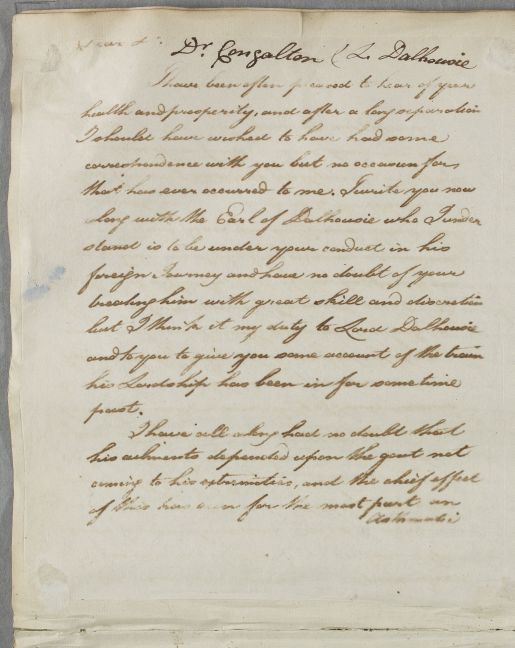 Dear Sir
Dr. Congalton (L. Dalhousie
I have been often pleased to hear of your
health and prosperity, and after a long separation
I should have wished to have had some
correspondence with you but no occasion for
that has ever occurred to me. I write you now
along with the Earl of Dalhousie who I under
stand is to be under your conduct in his
foreign Journey and have no doubt of your
treating him with great skill and discretion
but I think it my duty to Lord Dalhousie
and to you to give you some account of the train
his Lordship has been in for sometime
past.
I have all along had no doubt that
his ailments depended upon the gout not
coming to his extremities, and the chief effect
of this has been for the most part an
Asthmatic